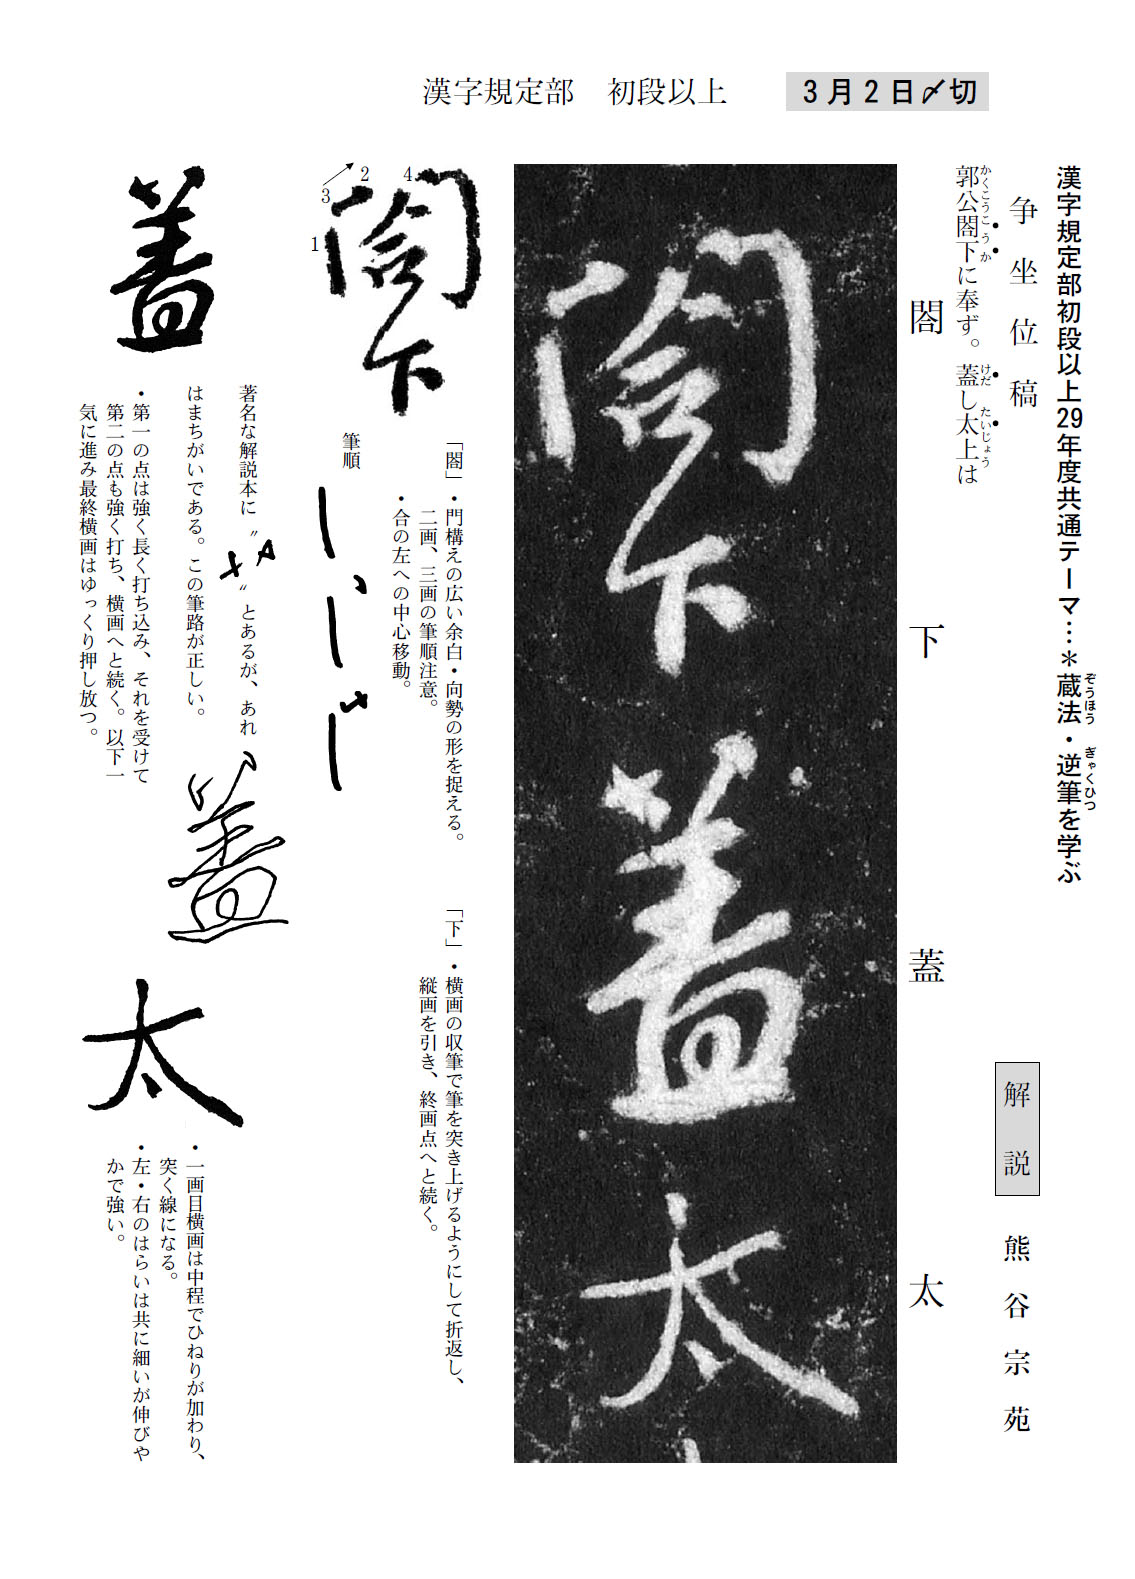 漢字規定部　初段以上　3月2日〆切
漢字規定部初段以上29年度共通テーマ…＊蔵法・逆筆を学ぶ
ぞうほう　ぎゃくひつ
争坐位稿
解説　熊谷宗苑
郭公閤下に奉ず。蓋し太上は
かくこうこうか　けだ　たいじょう
閤　下　蓋　太
閤下蓋太
「閤」・門構えの広い余白・向勢の形を捉える。
二画、三画の筆順注意。
・合の左への中心移動。
「下」・横画の収筆で筆を突き上げるようにして折返し、
縦画を引き、終画点へと続く。
閤下
1
2
3
4
筆順
蓋
著名な解説本に〝　〟とあるが、あれ
はまちがいである。この筆路が正しい。
蓋
・第一の点は強く長く打ち込み、それを受けて
第二の点も強く打ち、横画へと続く。以下一
気に進み最終横画はゆっくり押し放つ。
太
・一画目横画は中程でひねりが加わり、
突く線になる。
・左・右のはらいは共に細いが伸びや
かで強い。